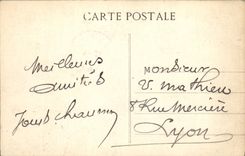 CARTE POSTALE
Meilleures
amitiés
Monsieur
V. Mathieu
8 Rue Mercière
Lyon